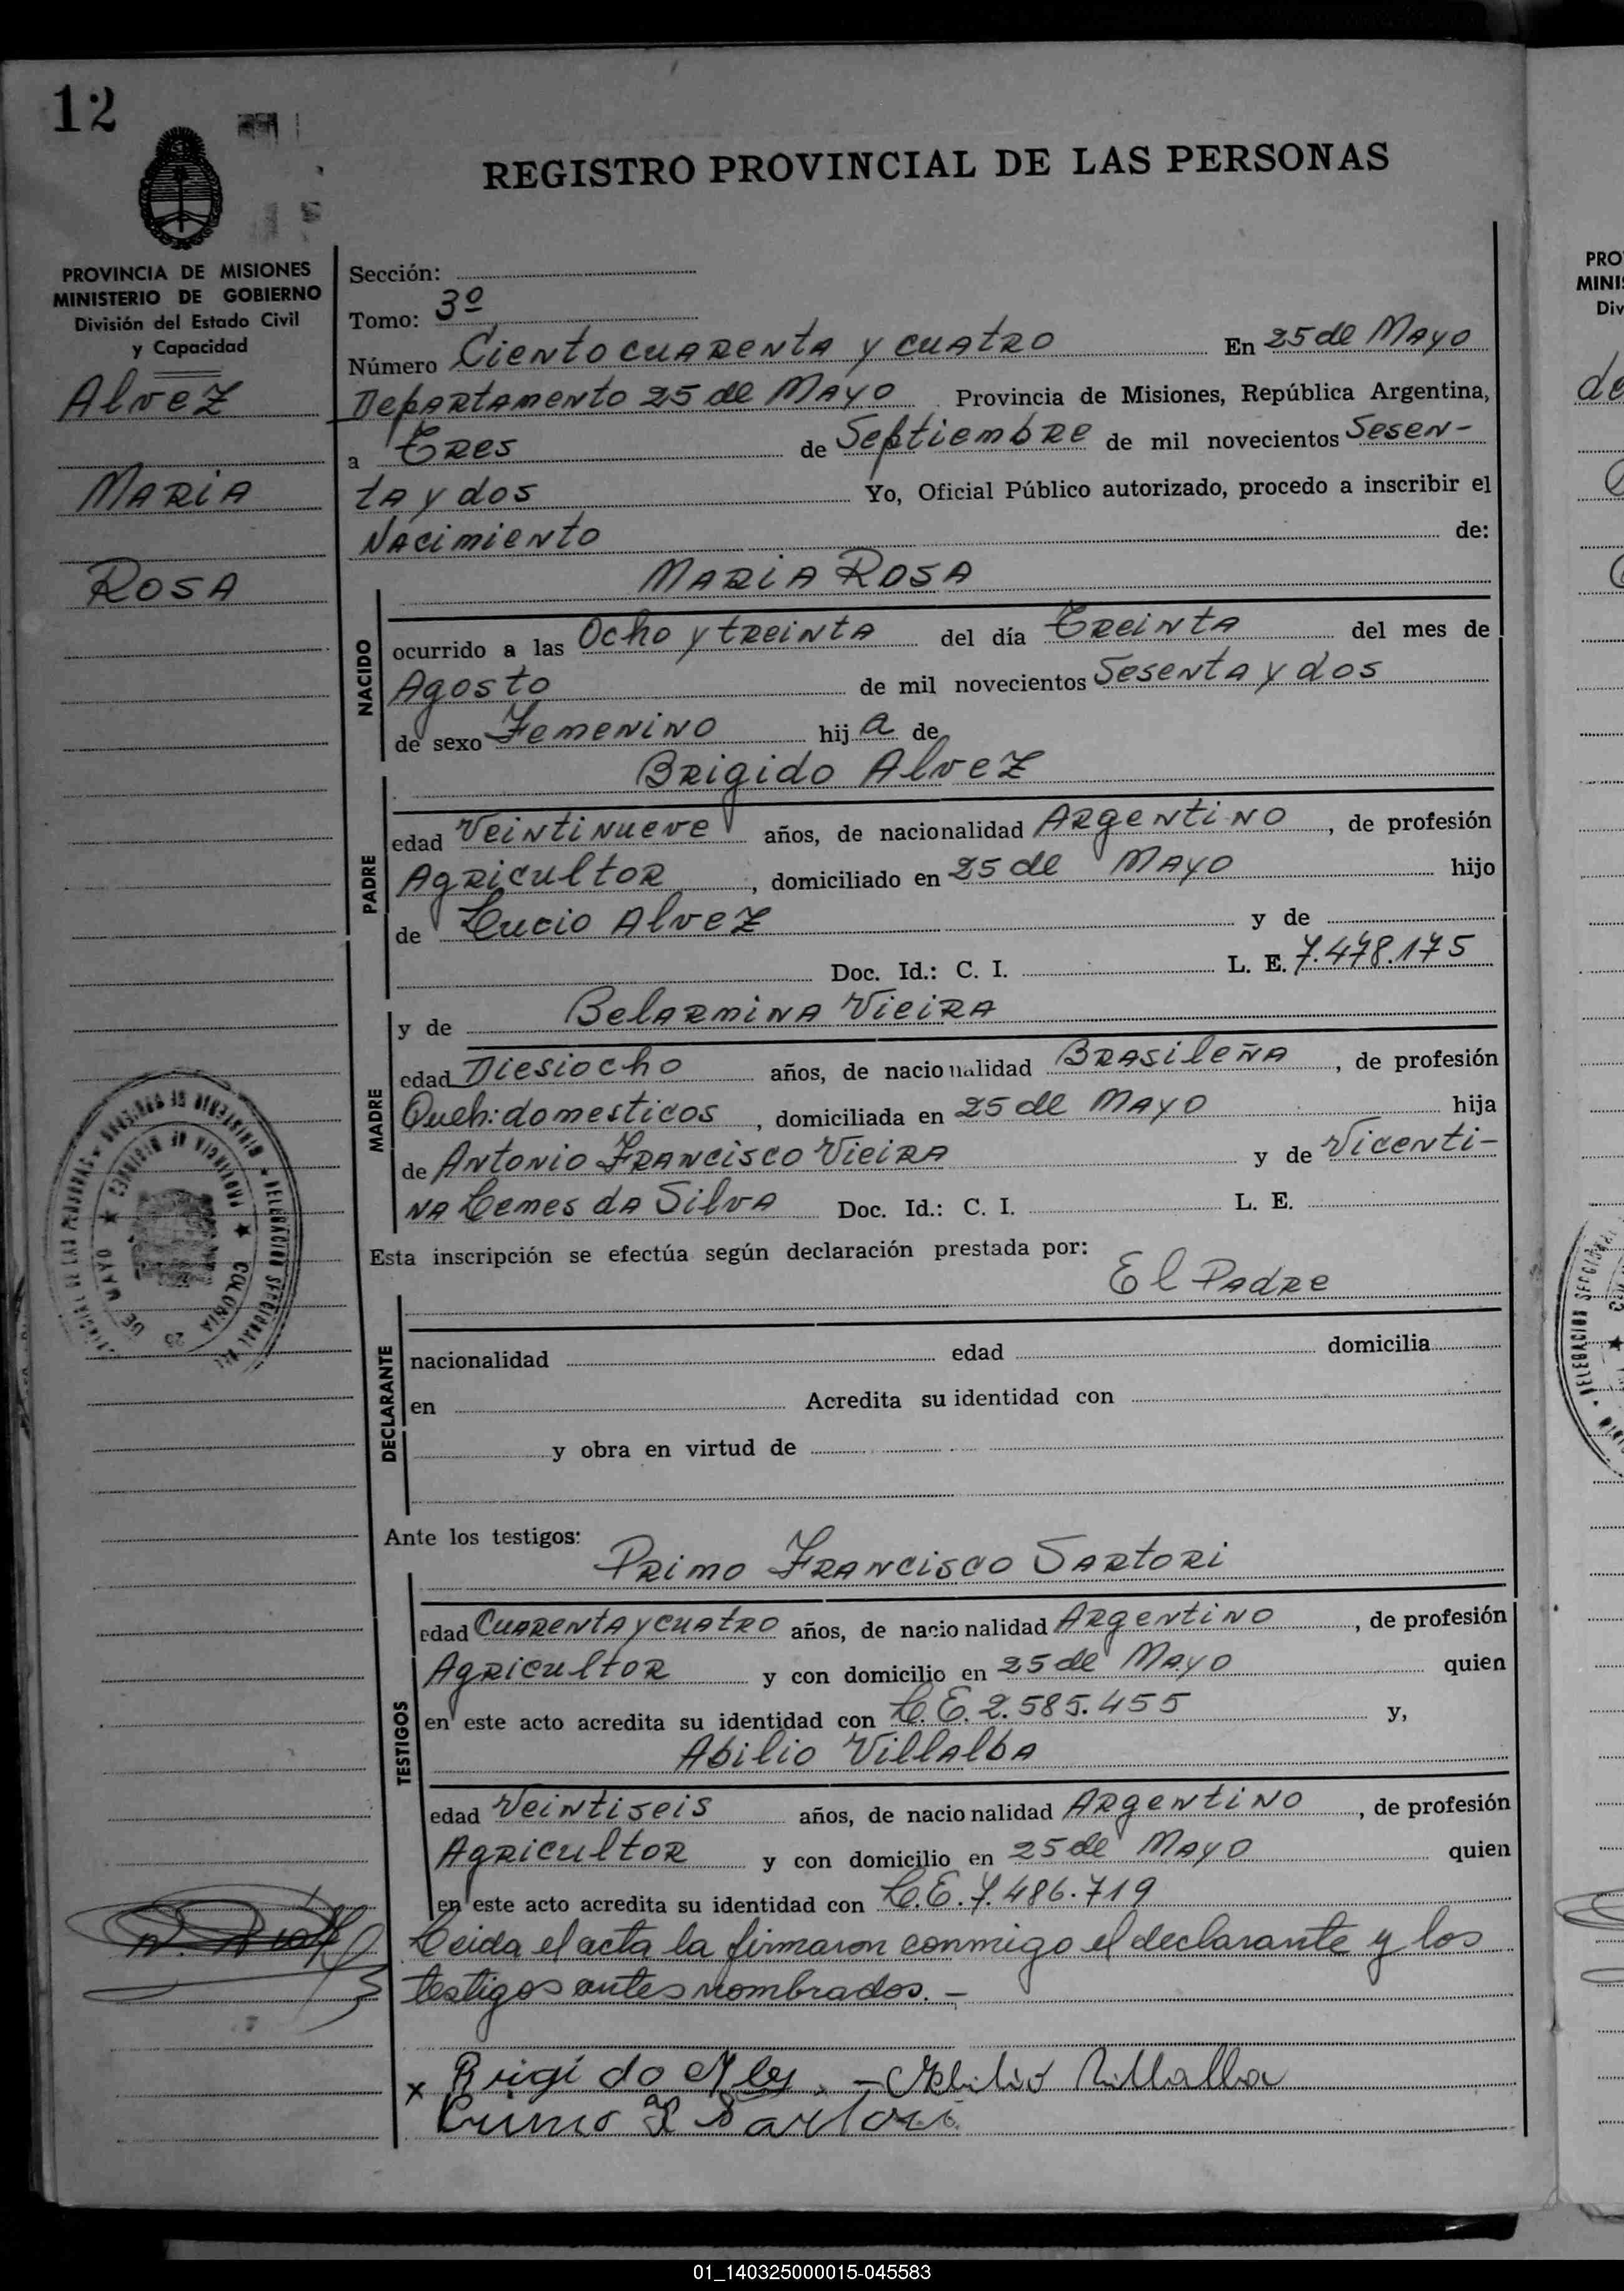 12
REGISTRO PROVINCIAL DE LAS PERSONAS
PROVINCIA DE MISIONES
MINISTERIO DE GOBIERNO
División del Estado Civil
y Capacidad
Alvez
Maria
Rosa
Sección:
Tomo: 3º
Número Ciento cuarenta y cuatro En 25 de Mayo
Departamento 25 de Mayo Provincia de Misiones, República Argentina,
a Tres de Septiembre de mil novecientos Sesen-
ta y dos Yo, Oficial Público autorizado, procedo a inscribir el
Nacimiento de:
Maria Rosa
NACIDO
ocurrido a las Ocho y treinta del día Treinta del mes de
Agosto de mil novecientos Sesenta y dos
de sexo Femenino hij a de
Brigido Alvez
PADRE
edad Veintinueve años, de nacionalidad Argentino, de profesión
Agricultor, domiciliado en 25 de Mayo hijo
de Lucio Alvez y de
Doc. Id.: C. I. L. E. 7.478.175
y de Belarmina Vieira
MADRE
edad Diesiocho años, de nacionalidad Brasileña, de profesión
Queh: domesticos, domiciliada en 25 de Mayo hija
de Antonio Francisco Vieira y de Vicenti-
na Lemes da Silva Doc. Id.: C. I. L. E.
Esta inscripción se efectúa según declaración prestada por:
El Padre
DECLARANTE
nacionalidad edad domicilia
en Acredita su identidad con
y obra en virtud de
Ante los testigos:
Primo Francisco Sartori
TESTIGOS
edad Cuarenta y cuatro años, de nacionalidad Argentino, de profesión
Agricultor y con domicilio en 25 de Mayo quien
en este acto acredita su identidad con L.E. 2.585.455 y,
Abilio Villalba
edad Veintiseis años, de nacionalidad Argentino, de profesión
Agricultor y con domicilio en 25 de Mayo quien
en este acto acredita su identidad con L.E. 7.486.719
Leida el acta la firmaron conmigo el declarante y los
testigos antes nombrados.-
x Brigido Alves. - Abilio Villalba
Primo F Sartori
01_140325000015-045583